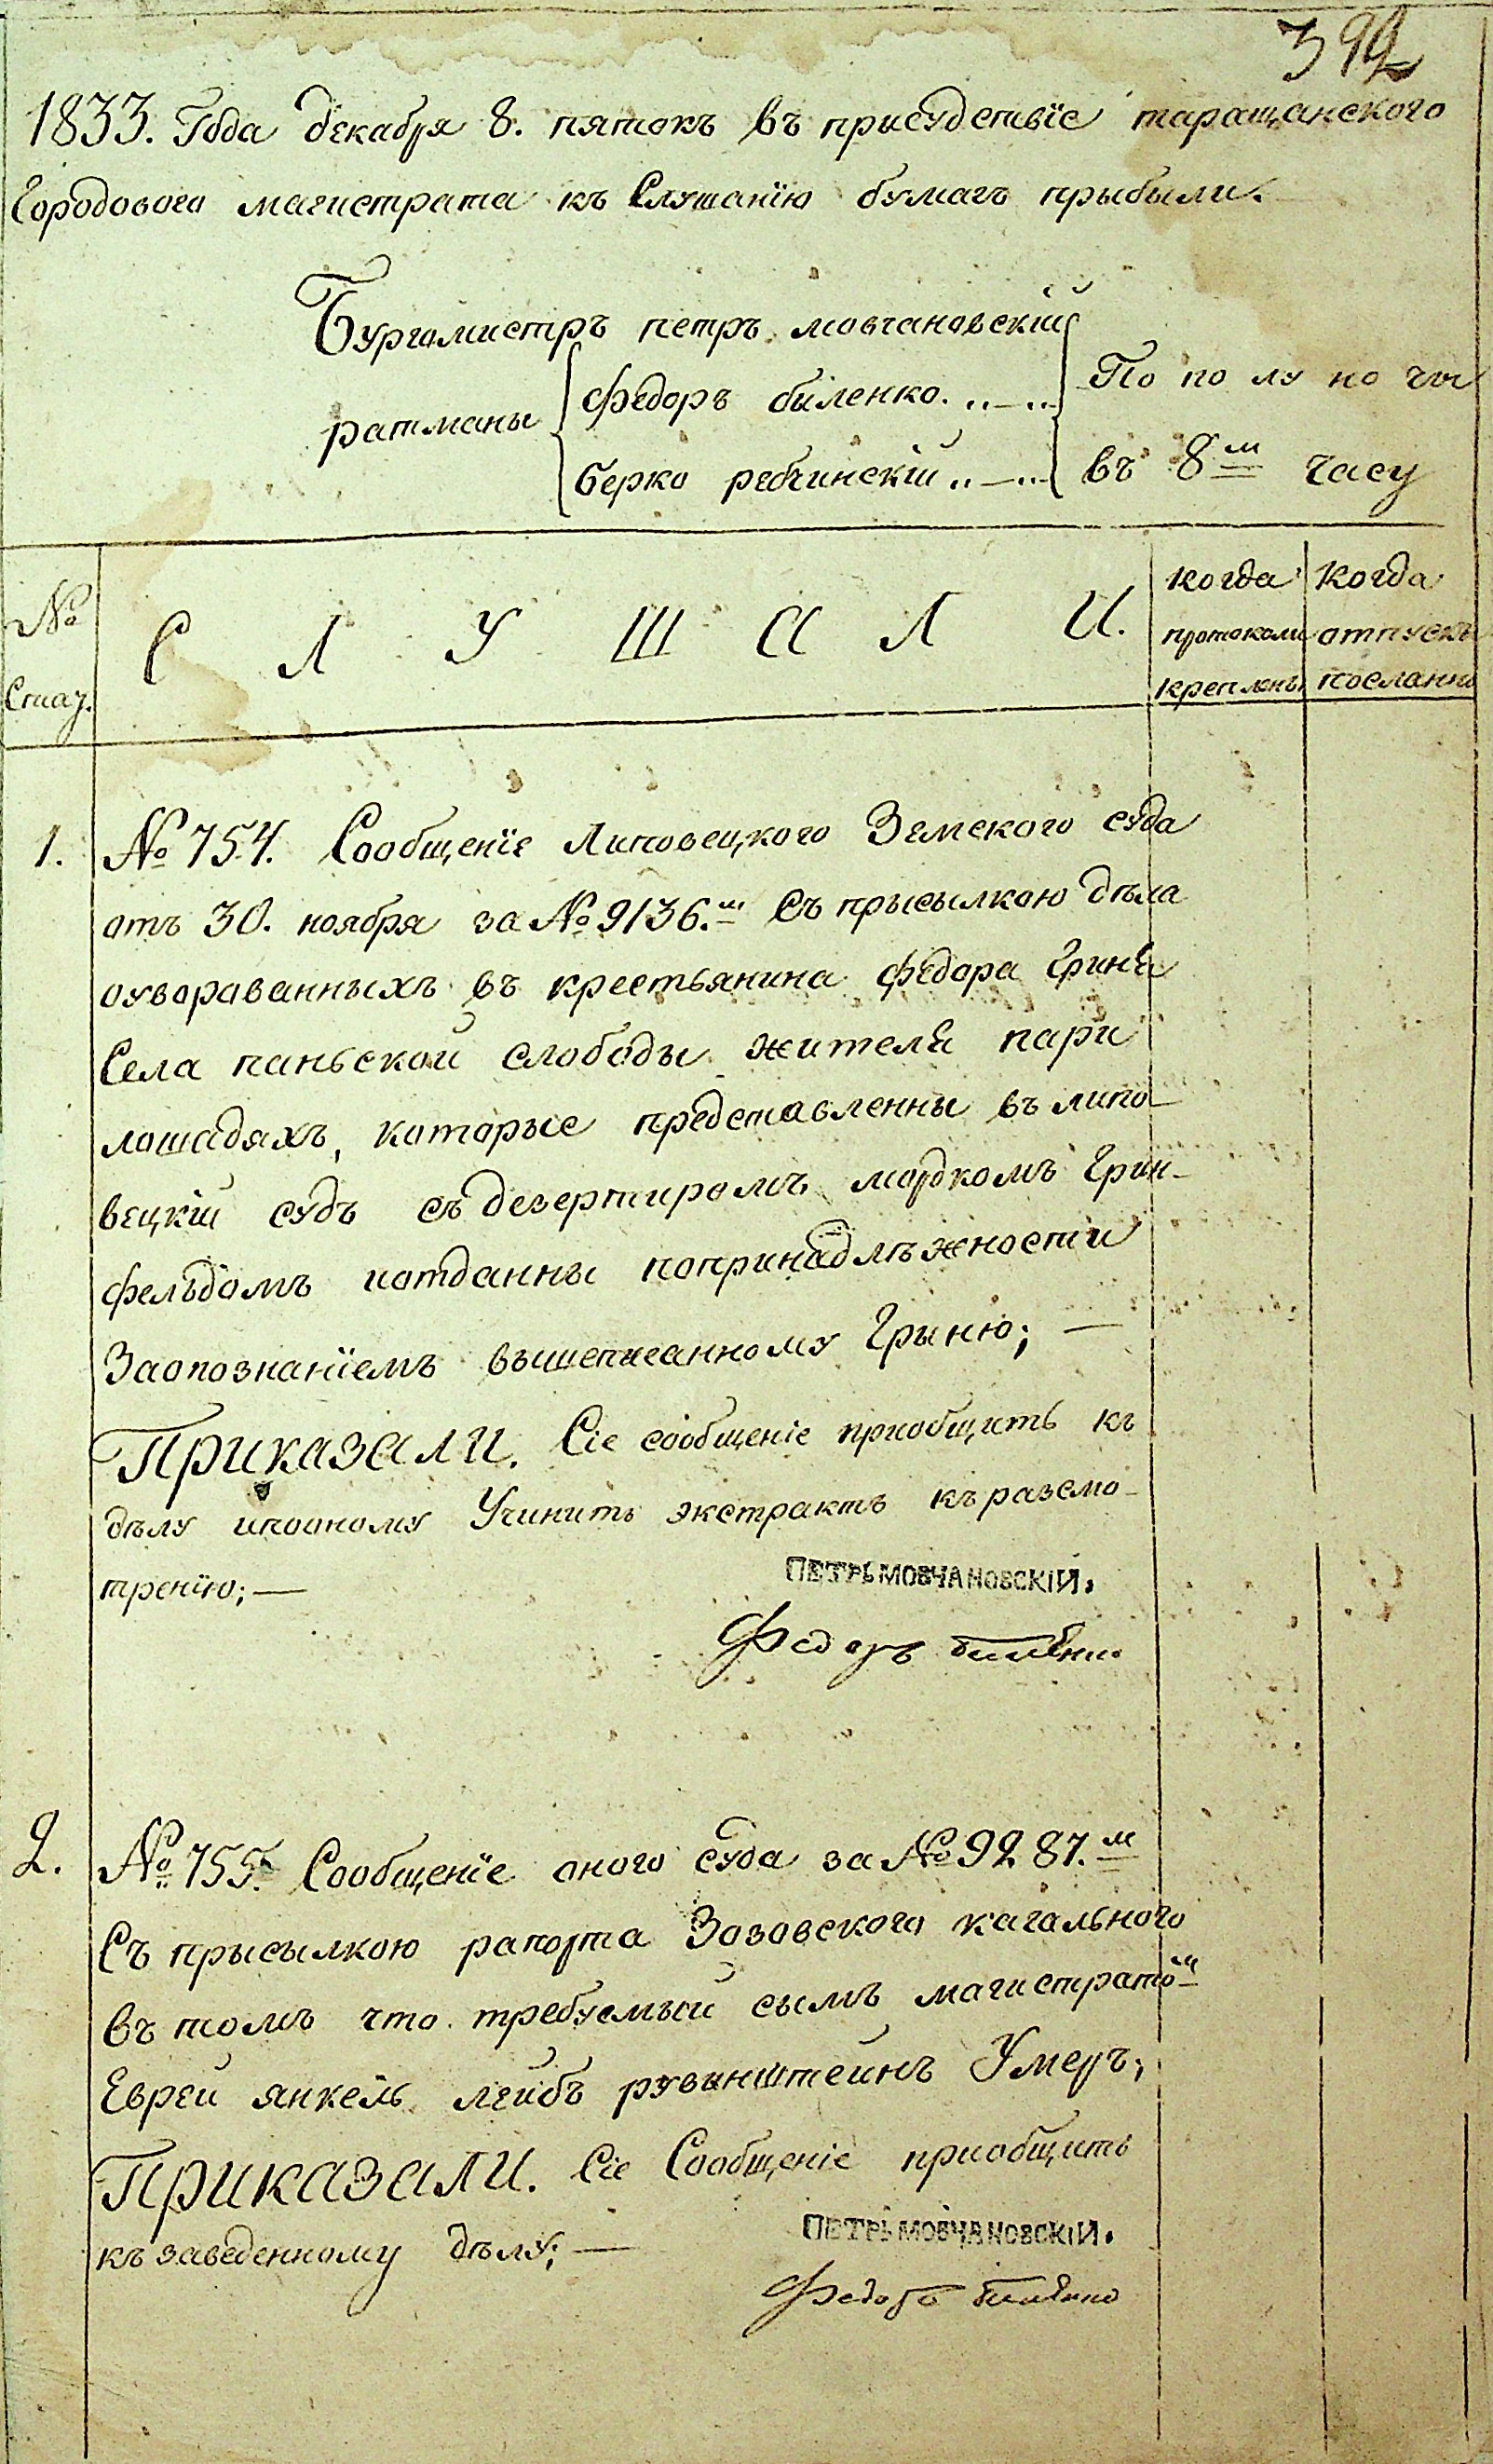 392
1833. Года декабря 8. пятокъ въ присудствіе таращанского
Городового магистрата къ Слушанїю бумагъ прыбыли.
Бургомистръ петръ мовчановскій
ратманы
федоръ биленко.
берко ребчинскій
По по лу но чы
въ 8м часу
№ Стат.
С Л У Ш А Л И.
когда протоколъ крепленъ
когда отпускъ посланно
1.
№ 754. Сообщенїе Липовецкого Земского суда
отъ 30. ноября за № 9136.м Съ прысылкою дѣла
оуворованныхъ въ крестьянина федора Гриня
Села паньской слободы жителя пари
лошадяхъ, которые представленны въ липо-
вецкій судъ съ дезертиромъ мордкомъ Грин-
фельдомъ иотданны попринадлѣжности
Заопознанїемъ вышеписанному Грыню; —
Приказали. Сіе сообщеніе приобщить къ
дѣлу ипооному Учинить экстрактъ къ разсмо-
тренїю; —
ПЕТРЬ МОВЧАНОВСКІЙ.
Федоръ биленко
2.
№ 755. Сообщенїе оного суда за № 9287.м
Съ прысылкою рапорта Зозовского кагального
въ томъ что требуемый сымъ магистрато.м
Еврей янкель лейбъ рувинштейнъ Умеръ;
Приказали. Сіе Сообщеніе приобщить
къ заведенному дѣлу; —
ПЕТРЬ МОВЧАНОВСКІЙ.
Федоръ биленко